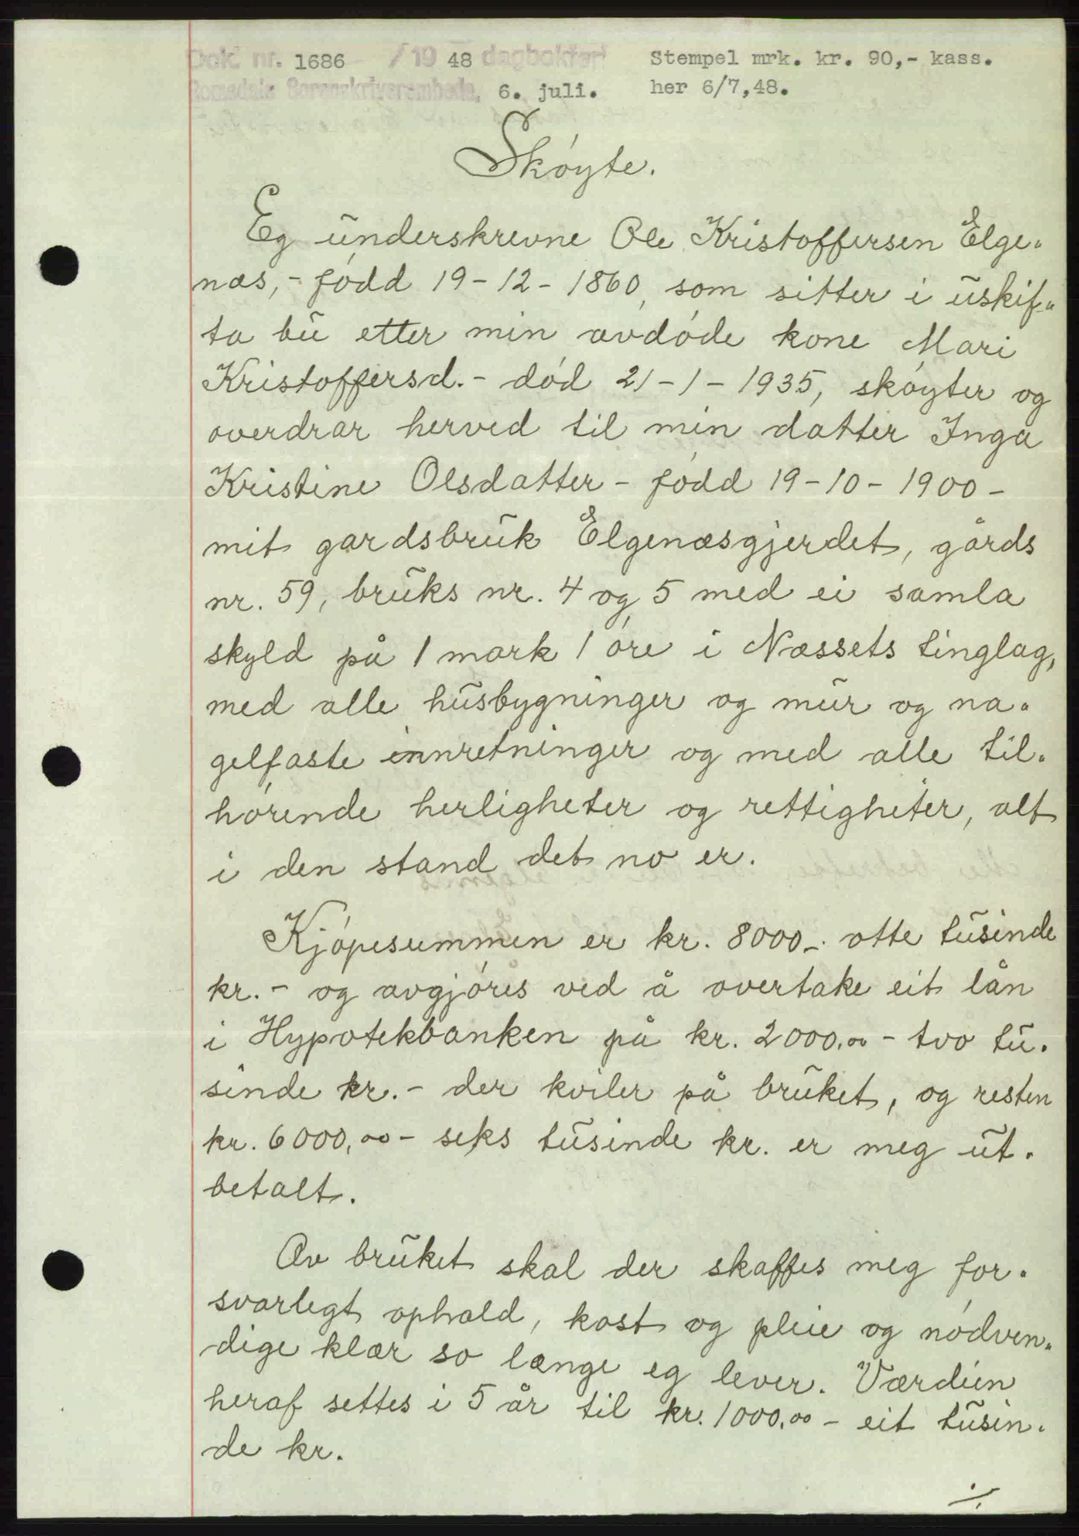 Dok. nr. 1686 / 19 48 dagbokført Stempel mrk. kr. 90,- kass.
Romsdals Sorenskriverembede, 6. juli. her 6/7,48.
Skóyte.
Eg underskrevne Ole Kristoffersen Elge-
næs, - fódd 19-12-1860, som sitter i uskif-
ta bu etter min avdóde kone Mari
Kristoffersd. - dód 21-1-1935, skóyter og
overdrar herved til min datter Inga
Kristine Olsdatter - fódd 19-10-1900 -
mit gardsbruk Elgenæsgjerdet, gårds
nr. 59, bruks nr. 4 og 5 med ei samla
skyld på 1 mark 1 óre i Næssets tinglag,
med alle husbygninger og mur og na-
gelfaste innretninger og med alle til-
hórende herligheter og rettigheter, alt
i den stand det no er.
Kjópesummen er kr. 8000,- otte tusinde
kr. - og avgjóres ved å overtake eit lån
i Hypotekbanken på kr. 2000,00 - tvo tu-
sinde kr. - der kviler på bruket, og resten
kr. 6000,00 - seks tusinde kr. er meg ut-
betalt.
Av bruket skal der skaffes meg for-
svarlegt ophald, kost og pleie og nódven-
dige klær so længe eg lever. Værdien
heraf settes i 5 år til kr. 1000,00 - eit tusin-
de kr.
./.